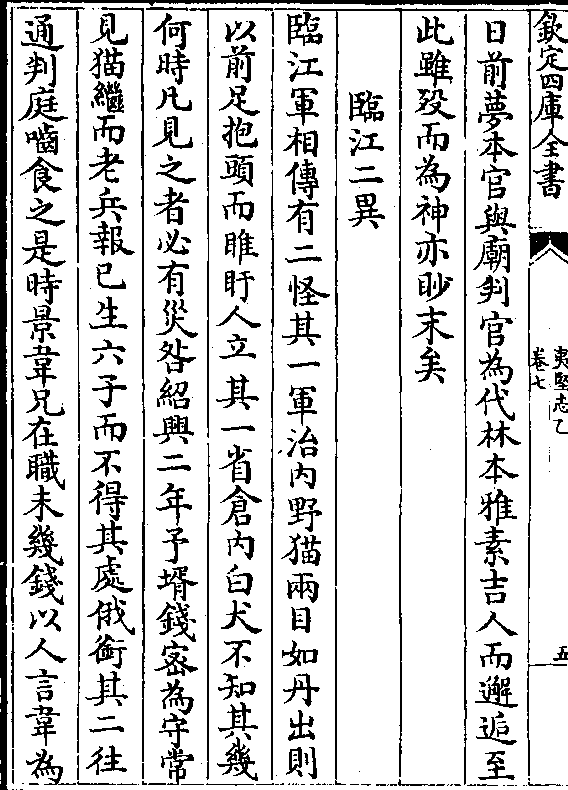 欽定四庫全書
夷堅志乙
卷七
五
日前夢本官與廟判官為代林本雅素吉人而邂逅至
此雖殁而為神亦眇末矣
臨江二異
臨江軍相傳有二怪其一軍治内野猫兩目如丹出則
以前足抱頭而睢盱人立其一省倉内白犬不知其幾
何時凡見之者必有災咎紹興二年予壻錢宻為守常
見猫繼而老兵報已生六子而不得其處俄銜其二往
通判庭嚙食之是時景韋兄在職未幾錢以人言韋為